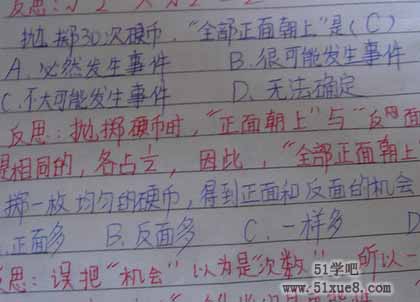 反思:
抛掷30次硬币,“全部正面朝上”是(C)
A.必然发生事件 B.很可能发生事件
C.不大可能发生事件 D.无法确定
反思:抛掷硬币时,“正面朝上”与“反面
是相同的,各占1/2,因此,“全部正面朝上
掷一枚均匀的硬币,得到正面和反面的机会
.正面多 B.反面多 C.一样多 D
思:误把“机会”以为是“次数”,所以一
51学吧
www.51xue8.com